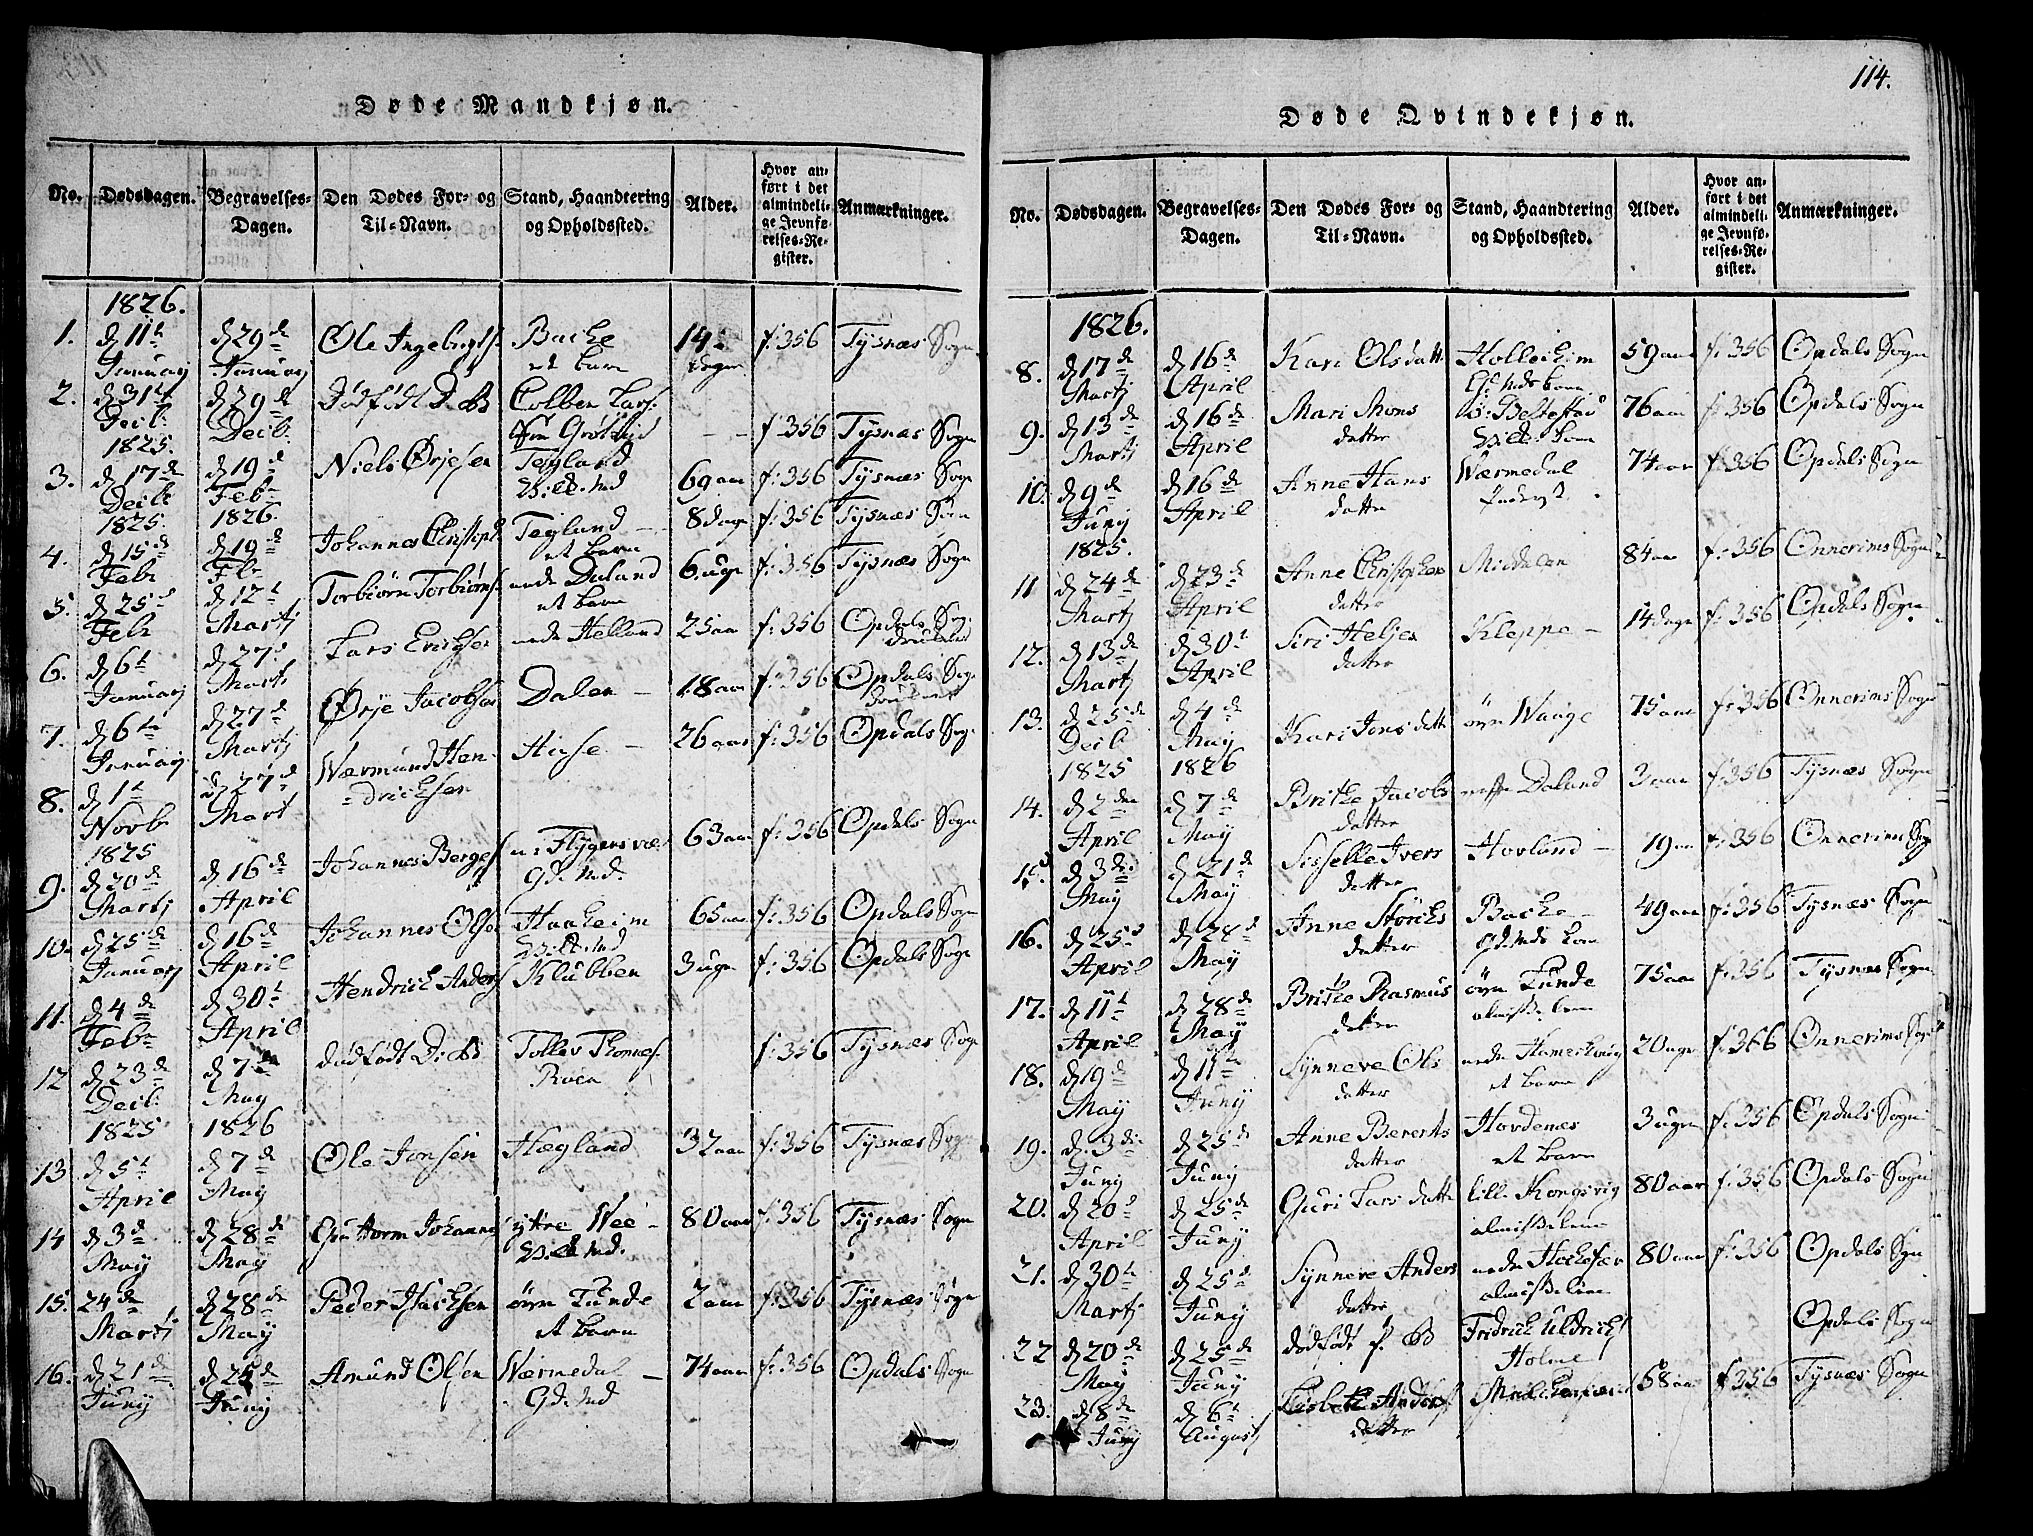 114.
Døde Mandkjøn.
No. Dødsdagen. Begravelses-Dagen. Den Dødes For- og Til-Navn. Stand, Haandtering og Opholdssted. Alder. Hvor anført i det almindelige Jevnførelses-Register. Anmærkninger.
1826.
1. d 11te Januarj d 29de Januarj Ole Ingebrigts. Bache et barn 14 dage f: 356 Tysnæs Sogn
2. d 31te Decb: 1825. d 29de Decb: Dødfødt D: B: f: 356 Tysnæs Sogn
3. d 17de Decb 1825. d 19de Feb 1826. Niels Ørjesen Tegland 69 aar f: 356 Tysnæs Sogn
4. d 15de Feb d 19de Feb Johannes Christoph Tegland et barn 8 dage f: 356 Tysnæs Sogn
5. d 25d Feb d 12te Martj Torbiørn Torbiørns. nede Daland et barn 6 uger f: 356 Tysnæs Sogn
6. d 6te Januarj d 27d Martj Lars Erichsen nede Helland 25 aar f: 356 Opdals Sog.
7. d 6te Januarj d 27de Martj Ørje Jacobsen Dalen 18 aar f: 356 Opdals Sog.
8. d 1te Novb 1825 d 27d Mart Wærmund Hendrichsen Huse 26 aar f: 356 Opdals Sog.
9. d 20de Martj d 16de April Johannes Berges. Gd. Md. 63 aar f: 356 Opdals Sogn
10. d 25de Januarj d 16de April Johannes Olsen Haaheim 65 aar f: 356 Opdals Sogn
11. d 4de Feb d 30te April Hendrich Anders Klubben 3 uger f: 356 Opdals Sogn
12 d 23de Decb: 1825 d 7de May 1826 dødfødt D: B: Tollev Thomes. Roen f: 356 Tysnæs Sogn
13 d 5te April d 7de May Ole Jonsen Hægland 32 aar f: 356 Tysnæs Sogn
14 d 3de May d 28de May Guttorm Johannes ytre Wee 80 aar f: 356 Tysnæs Sogn
15. 24de Martj d 28de May Peder Isachsen øvre Tunde et barn 2 aar f: 356 Tysnæs Sogn
16. d 21de Junj d 25de Junj Amund Olsen Wærmedal Gd. Md 74 aar f: 356 Opdals Sogn
Døde Qvindekjøn.
No. Dødsdagen. Begravelses-Dagen. Den Dødes For- og Til-Navn. Stand, Haandtering og Opholdssted. Alder. Hvor anført i det almindelige Jevnførelses-Register. Anmærkninger.
1826.
8. d 17de Martj d 16de April Kari Olsdatt Holleheim 59 aar f: 356 Opdals Sogn
9. d 13de Martj d 16de April Mari Mons datter 76 aar f: 356 Opdals Sogn
10. d 9de Junj 1825. d 16de April Anne Hans datter Wærmedal 74 aar f: 356 Opdals Sogn
11 d 24de Martj d 23de April Anne Christophers datter Middalen 84 aar f: 356 Onnerims Sogn
12. d 13de Martj d 30te April Siri Heljes datter Kleppe 14 dage f: 356 Opdals Sogn
13. d 25de Decb 1825 d 4de May 1826 Kari Jons datte øvre Waage 75 aar f: 356 Onnerims Sogn
14. d 2den April d 7de May Brithe Jacobs datter Daland 3 aar f: 356 Tysnæs Sogn
15. d 3die May d 21de May Sisselle Ivers datter Hovland 19 aar f: 356 Onnerims Sog
16. d 25d April d 28d May Anne Størchs datter Bache 49 aar f: 356 Tysnæs Sogn
17. d 11te April d 28de May Brithe Rasmus datter øvre Tunde 75 aar f: 356 Tysnæs Sogn
18. d 19de May d 11te Junj Synneve Ols datter et barn 20 uger f: 366 Onnerims Sogn
19. d. 3die Junj d 25de Junj Anne Berents datter Hovdenes et barn 3 uger f: 356 Opdals Sogn
20. d 20d April d 25de Junj Guri Lars datte lille Kongsvig 80 aar f: 356 Opdals Sogn
21. d 30te Martj d 25d Junj Synneve Anders datter 80 aar f: 356 Opdals Sogn
22 d 20de May d 25de Junj dødfødt P. B Fridrich Uldrichs Holme Opdals Sogn
23. d 8de Junj d 6te August Lisbeth Anders datter 68 aar f 356 Tysnæs Sogn